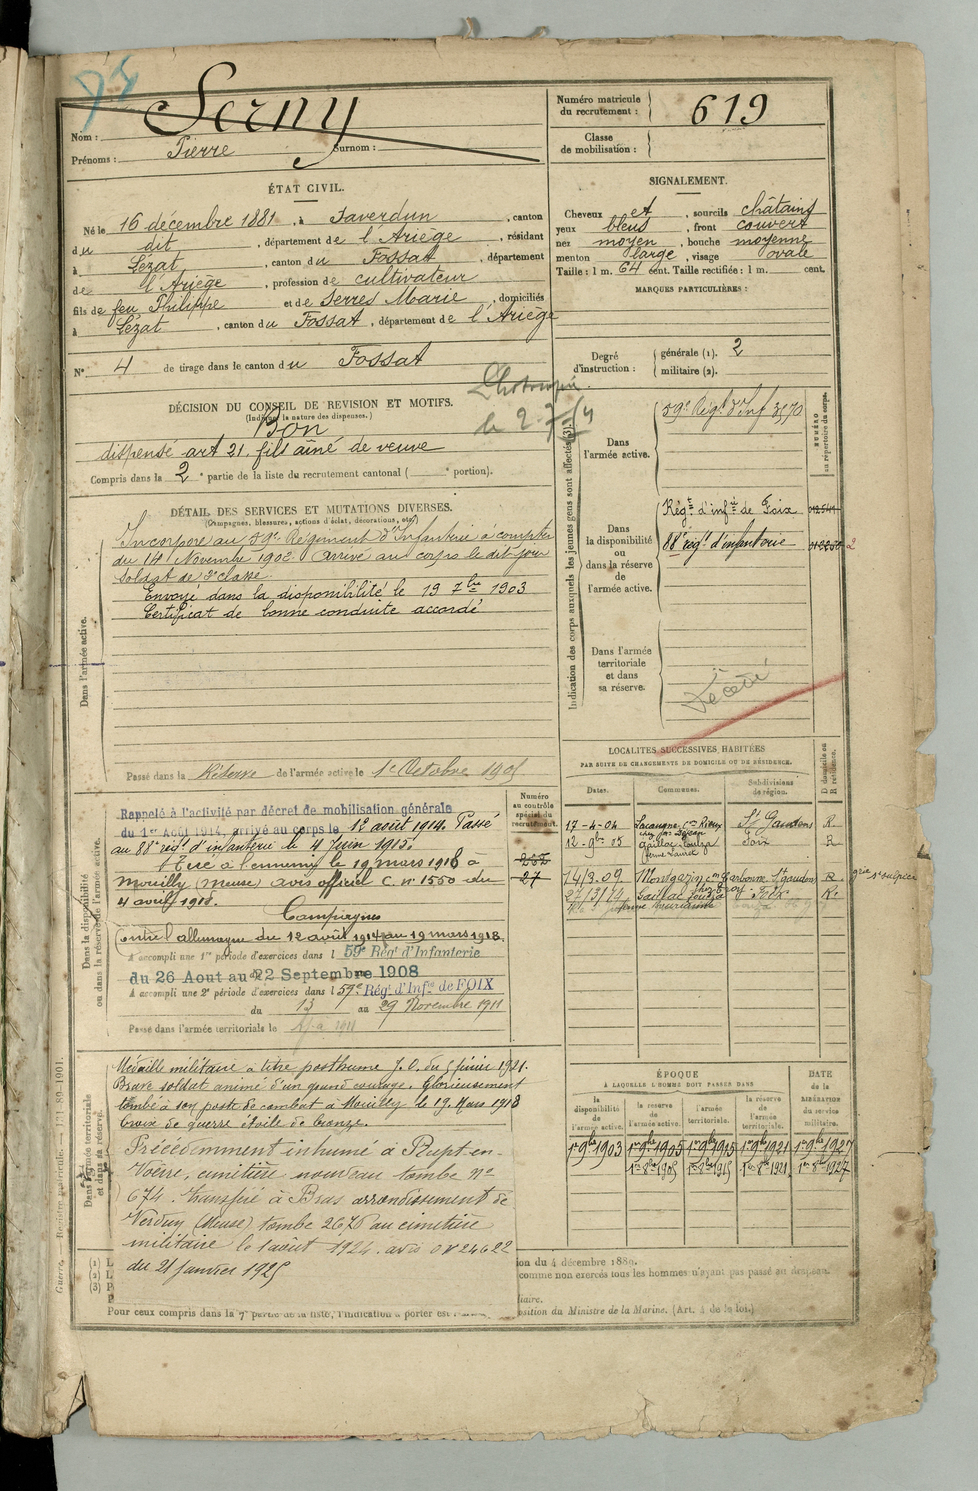 Nom : Serny
Prénoms : Pierre Surnom :
Numéro matricule du recrutement : 619
Classe de mobilisation :
ÉTAT CIVIL.
Né le 16 décembre 1881, à Saverdun, canton
du dit, département de l'Ariège, résidant
à Lézat, canton du Fossat, département
de l'Ariège, profession de cultivateur
fils de feu Philippe et de Serres Marie, domiciliés
à Lézat, canton du Fossat, département de l'Ariège
N° 4 de tirage dans le canton du Fossat
SIGNALEMENT.
Cheveux et, sourcils châtains
yeux bleus, front couvert
nez moyen, bouche moyenne
menton large, visage ovale
Taille : 1 m. 64 cent. Taille rectifiée : 1 m. cent.
MARQUES PARTICULIÈRES :
Degré d'instruction : générale (1). 2
militaire (2).
le 2-7-
DÉCISION DU CONSEIL DE REVISION ET MOTIFS.
(Indiquer la nature des dispenses.)
Bon
dispensé art 21. fils aîné de veuve
Compris dans la 2e partie de la liste du recrutement cantonal ( e portion).
DÉTAIL DES SERVICES ET MUTATIONS DIVERSES.
(Campagnes, blessures, actions d'éclat, décorations, etc.)
Dans l'armée active.
Incorporé au 59e Régiment d'Infanterie à compter
du 14 Novembre 1902 Arrivé au corps le dit jour
soldat de 2e classe.
Envoyé dans la disponibilité le 19 7bre 1903
Certificat de bonne conduite accordé
Passé dans la Réserve de l'armée active le 1er Octobre 1905
Indication des corps auxquels les jeunes gens sont affectés (3).
NUMÉRO au répertoire du corps.
Dans l'armée active.
59e Régt d'Inf 3570
Dans la disponibilité ou dans la réserve de l'armée active.
Régt d'infie de Foix
88e régt d'infanterie
Dans l'armée territoriale et dans sa réserve.
Décédé
LOCALITÉS SUCCESSIVES HABITÉES
PAR SUITE DE CHANGEMENTS DE DOMICILE OU DE RÉSIDENCE.
Dates. Communes. Subdivisions de région. D domicile ou R résidence.
17-4-04 Lacaugne, con Rieux St Gaudens R
12-9bre 05 Gaillac-Toulza Foix R
14/3.09 Montgazin con Carbonne St Gaudens R
27/3/14 Gaillac Toulza Foix R
Dans la disponibilité ou dans la réserve de l'armée active.
Numéro au contrôle spécial du recrutement.
27
Rappelé à l'activité par décret de mobilisation générale
du 1er Août 1914, arrivé au corps le 12 août 1914. Passé
au 88e régt d'infanterie le 4 juin 1915.
Tué à l'ennemi le 19 mars 1918 à
Mouilly (Meuse) avis officiel C. n° 1550 du
4 avril 1918.
Campagnes
Contre l'allemagne du 12 août 1914 au 19 mars 1918.
A accompli une 1re période d'exercices dans l 59e Régt d'Infanterie
du 26 Aout au 22 Septembre 1908
A accompli une 2e période d'exercices dans l 59e Régt d'Infie de FOIX
du 13 au 29 Novembre 1911
Passé dans l'armée territoriale le
Dans l'armée territoriale et dans sa réserve.
Médaille militaire à titre posthume J.O. du 5 février 1921.
Brave soldat animé d'un grand courage. Glorieusement
tombé à son poste de combat à Mouilly le 19 Mars 1918
Croix de guerre étoile de bronze.
Précédemment inhumé à Rupt-en-
Woëvre, cimetière nouveau tombe n°
674. transféré à Bras arrondissement de
Verdun (Meuse) tombe 2676 au cimetière
militaire le 1 août 1924. avis on 24622
du 21 janvier 1925
ÉPOQUE
À LAQUELLE L'HOMME DOIT PASSER DANS
DATE de la LIBÉRATION du service militaire.
la disponibilité de l'armée active.
la réserve de l'armée active.
l'armée territoriale.
la réserve de l'armée territoriale.
1er 9bre 1903 1er 9bre 1905 1er 9bre 1915 1er 9bre 1921 1er 9bre 1927
1er 8bre 1905 1er 8bre 1915 1er 8bre 1921 1er 8bre 1927
(1) L
(2) L
(3) P
ion du 4 décembre 1889.
comme non exercés tous les hommes n'ayant pas passé au drapeau.
Pour ceux compris dans la 7e partie de la liste, l'indication à porter est
osition du Ministre de la Marine. (Art. 4 de la loi.)